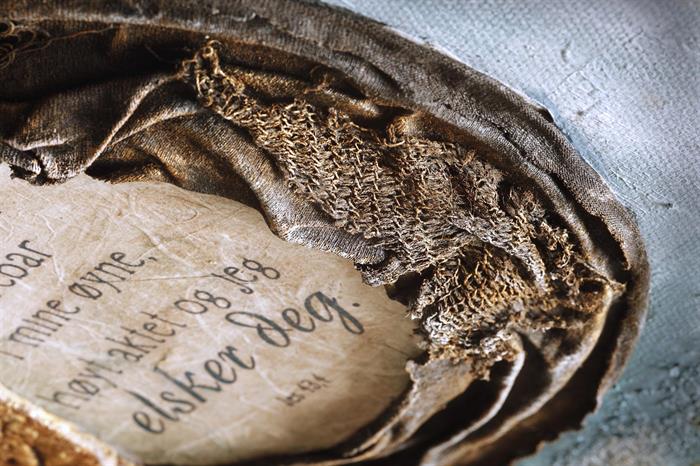 ebar
i mine øyne,
høyt aktet og Jeg
elsker deg.
Jes 43,4